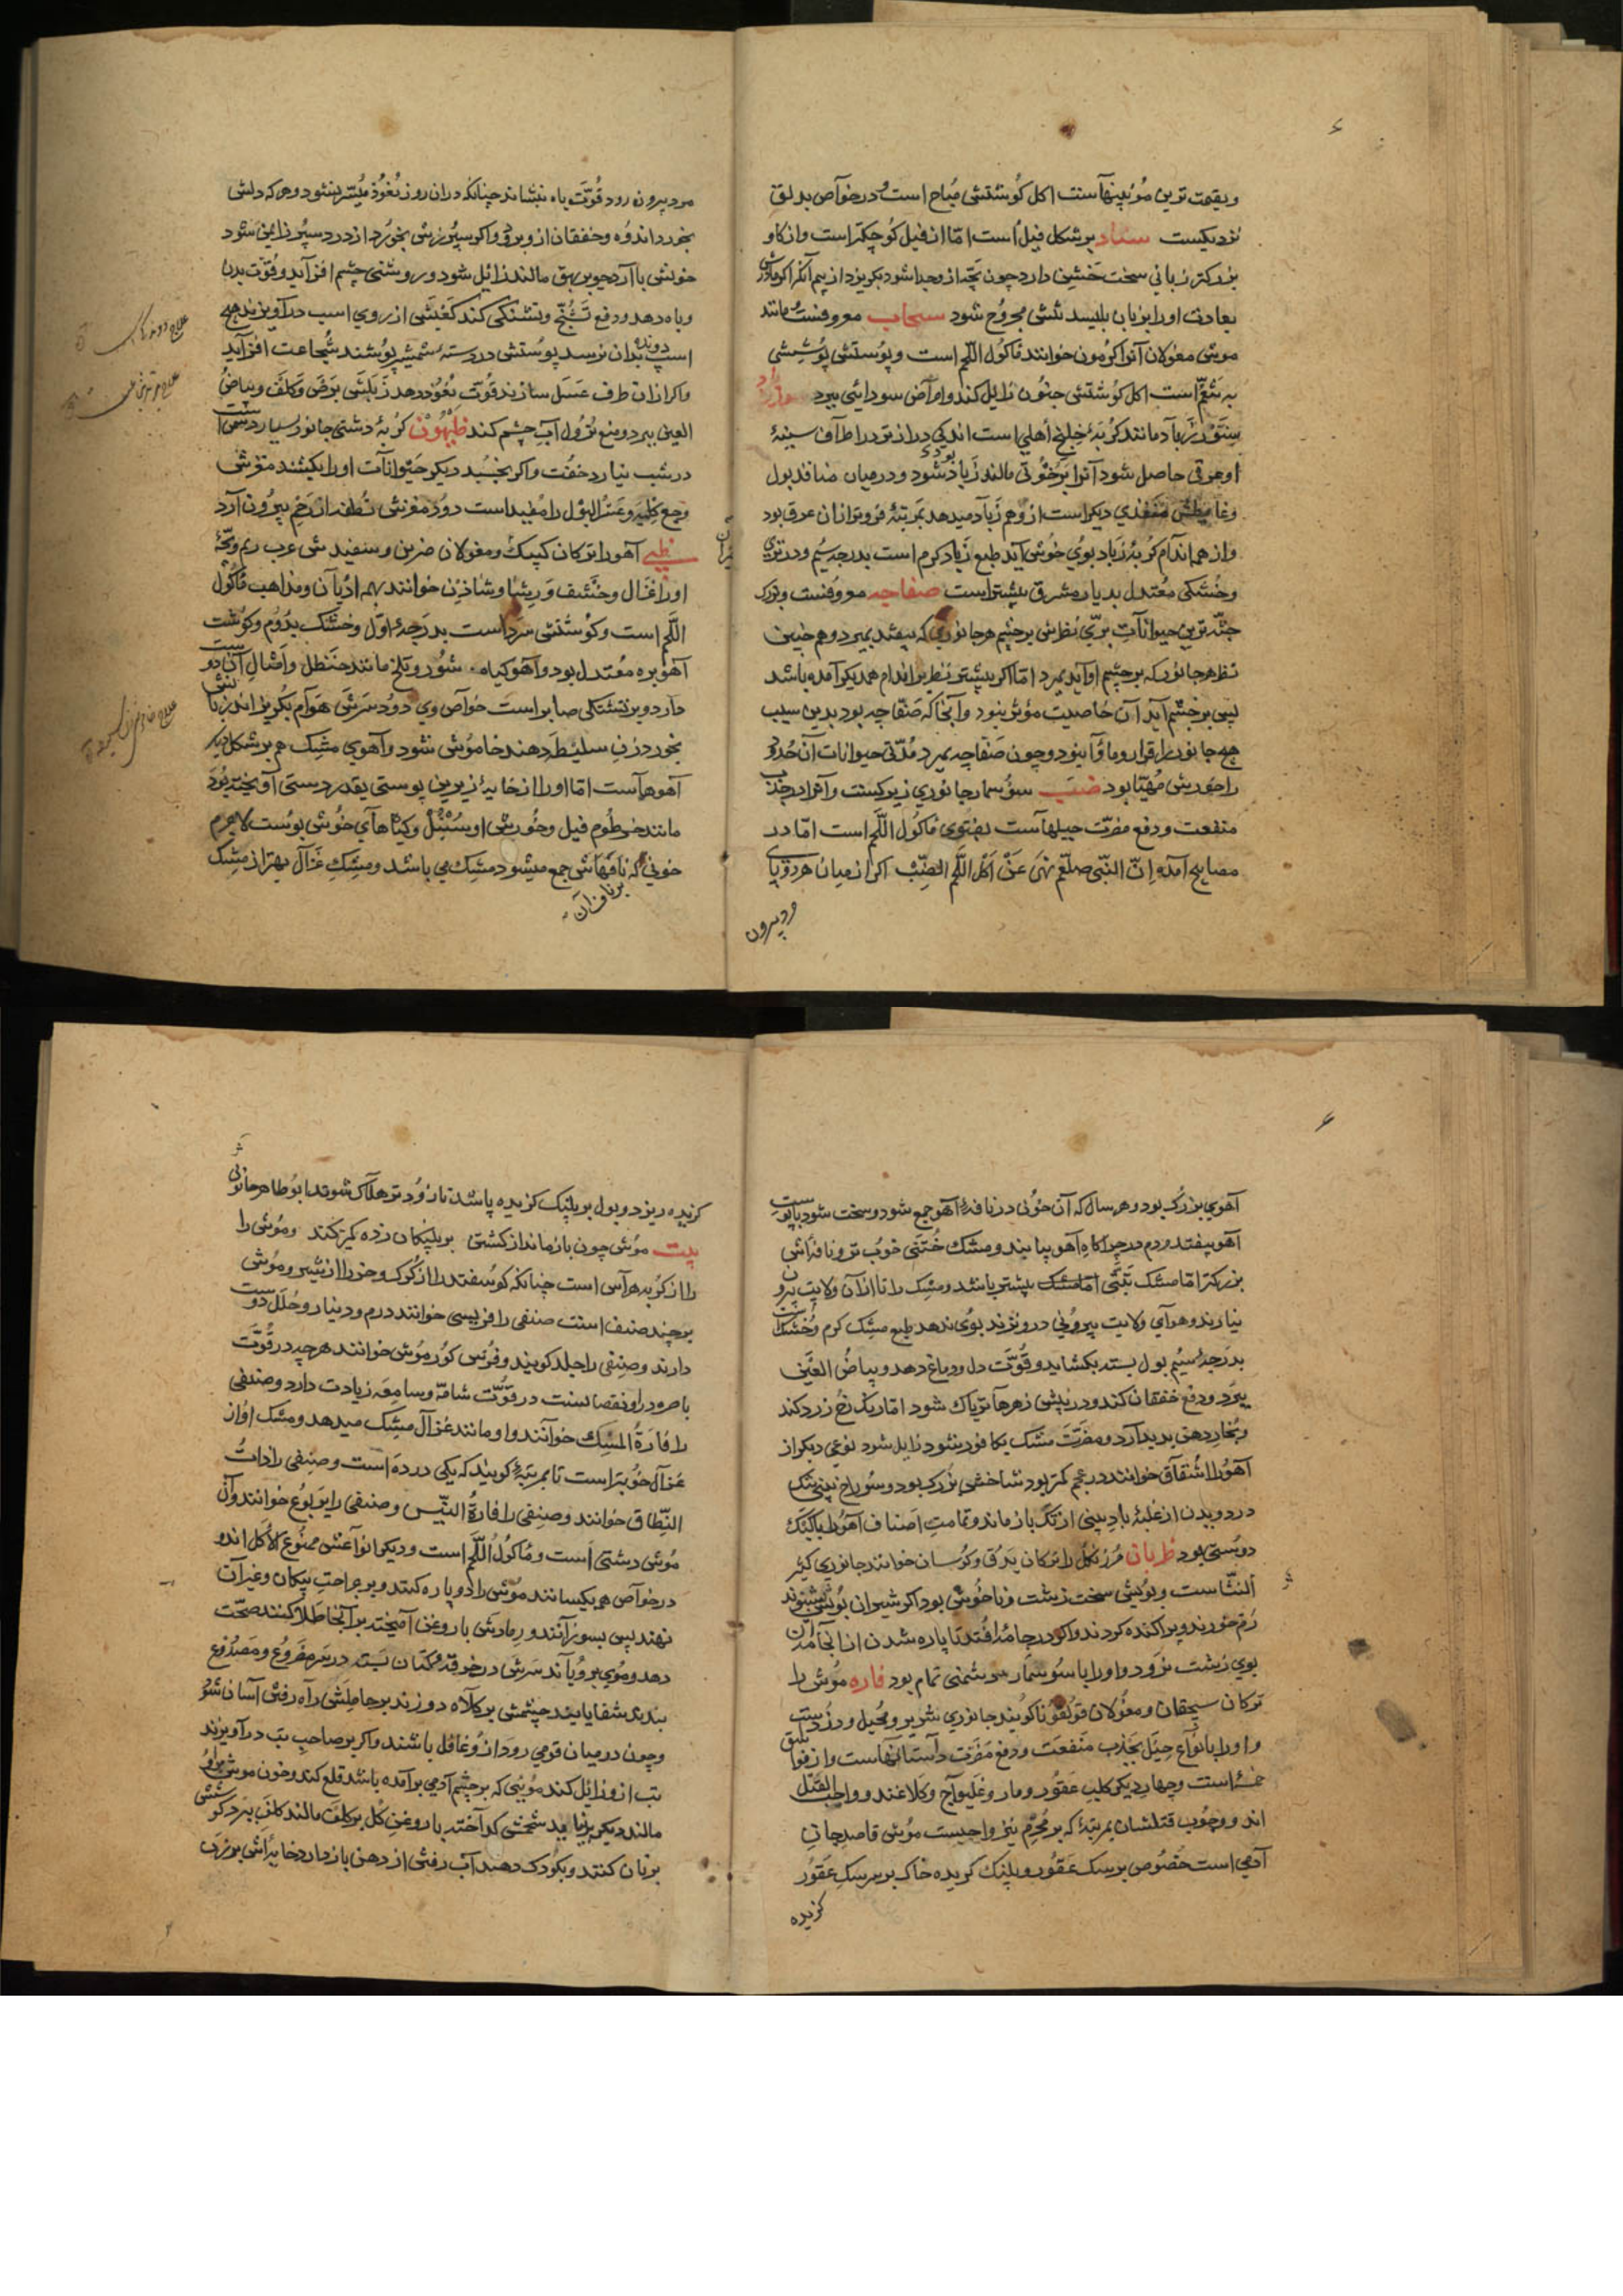 وبقیمت ترین موئینهاست اکل کوشتش مباح است ودر خواص بدلق
نزدیکست سناد بر شکل فیل است اما از فیل کوچکتر است واز کاو
بزرکتر زبانی سخت خشن دارد چون بچه از وجدا شود بکریزد از بیم آنکه اکر مادرش
بعادت اورا بزبان بلیسد تنش مجروح شود سنجاب معروفست مانند
موش مغولان آنرا کرمون خوانند ماکول اللحم است وپوستش پوشش
است اکل کوشتش جنون زایل کند وامراض سودایی ببرد
سنور زباد مانند کربهٔ خلنج اهلی است اندکی درازتر در اطراف سینهٔ
او عرقی حاصل شود آنرا بر خوئی مالند زیاد شود ودر میان منافذ بول
وغایطش منفذی دیکر است از وهم زباد میدهد بمرتبهٔ فروتر از ان عرق بود
واز همه اندام کربهٔ زباد بوی خوش آید طبع زباد کرم است بدرجه سیم ودر تری
وخشکی معتدل بدیار مشرق بیشتر است صفاجه معروفست وبزرک
جثه ترین حیوانات بری نظرش بر چشم هر جانوری که بیفتد بمیرد وهم چنین
نظر هر جانور که بر چشم او آید بمیرد اما اکر بیشتر نظر بر اندام همدیکر آمده باشد
پس بر چشم آید آن خاصیت موثر نبود وآنجا که صفاجه بود بدین سبب
هیچ جانور را قرار وماوا نبود وچون صفاجه بمیرد مدتی حیوانات آن حدود
را خورش مهیا بود ضب سوسمار جانوری زیرکست واو را در جذب
منفعت ودفع مضرت حیلهاست بفتوی ماکول اللحم است اما در
مصابیح آمده ان النبی صلعم نهی عن اکل اللحم الضب اکر از میان هر دو پای
ود بیرون
مرد بیرون رود قوت باه بنشاند چنانکه دران روز نعوذ میسر نشود وهر که دلش
بخورد اندوه وخفقان ازو برود واکر سپرزش بخورد از درد سپرز ایمن شود
خونش با آرد جو بر بهق مالند زایل شود وروشنی چشم افزاید وقوت بدن
وباه دهد ودفع تشنج وتشنکی کند کعبش از روی اسب درآویزند هیچ
اسپ دونده بدان نرسد پوستش در دستهٔ شمشیر پوشند شجاعت افزاید
واکر ازان ظرف عسل سازند قوت نعوذ دهد زبلش برص وکلف وبیاض
العین ببرد ومنع نزول آب چشم کند کربهٔ دشتی جانور بسیار دشمن است
در شب نیارد خفت واکر بخسبد دیکر حیوانات اورا بکشند مغزش
وجع کلیه وعسر البول را مفید است دود مغزش نطفه از رحم بیرون آرد
ظبی آهو را ترکان کییک ومغولان ضرین وسفیدش عرب ریم وبچهٔ
اورا غزال وخشف ورشا وشاذن خوانند بهمه ادیان ومذاهب ماکول
اللحم است وکوشتش سرد است بدرجهٔ اول وخشک بدوم وکوشت
آهو بره معتدل بود وآهو کیاه شور وتلخ مانند حنظل وامثال آن دوست
دارد وبر تشنکی صابر است خواص وی دود سرش هوام بکریزاند زبانش
بخورد زن سلیطه دهند خاموش شود وآهوی مشک هم بر شکل دیکر
آهوهاست اما اورا از خایه زیرین پوستی بقدر دستی آویخته بود
مانند خرطوم فیل وخورش او سنبل وکیاهای خوش بوست لاجرم
خونی که نافهاش جمع میشود مشک می باشد ومشک غزال بهتر از مشک
آهوی بزرک بود وهر سال که آن خونی در نافهٔ آهو جمع شود وسخت شود با پوست
آهو بیفتد ومردم در چراکاه آهو بیابند ومشک ختنی خوب تر ونافه اش
بزرکتر اما مشک تبتی بیشتر باشد ومشک را تا ازان ولایت بیرون
نیارند وهوای ولایت بیرونی درو نزند بوی ندهد طبع مشک کرم وخشک است
بدرجهٔ سیم بول بسته بکشاید وقوت دل ودماغ دهد وبیاض العین
ببرد ودفع خفقان کند ودر پیش زهرها تریاک شود اما رنک رخ زرد کند
وبخار دهن پدید آرد ومضرت مشک بکافور نشود زایل شود نوعی دیکر از
آهو را خوانند در عجم کمتر بود شاخش بزرک بود وسوراخ بینی تنک
در دویدن از غلبهٔ باد بینی از تک باز ماند وتمامت اصناف آهو را با کبک
دوستی بود ظربان را ترکان وکرسان خوانند جانوری کثیر
النتاست وبویش سخت زشت وناخوش بود اکر شیران بویش شنوند
رم خورند وپراکنده کردند واکر در جامه افتد تا پاره شدن از انجامه آن
بوی زشت نرود واو را با سوسمار دشمنی تمام بود فاره موش را
ترکان سیجقان ومغولان قولقونا کویند جانوری شریر ومحیل ودزدست
واو را بانواع حیل بجذب منفعت ودفع مضرت داستانهاست واز فواسق
خمسه است وچهار دیکر کلب عقور ومار وغلیواج وکلاغند وواجب القتل
اند ووجوب قتلشان بمرتبهٔ که بر محرم نیز واجبست موش قاصد جان
آدمی است خصوص بر سک عقور وپلنک کزیده خاک بر سر سک عقور
کزیده
کزیده ریزد وبول بر پلنک کزیده پاشد تا زودتر هلاک شوند ابو طاهر خاتونی
بیت موش چون باز ماند از کشتن بر پلنکان زده کمیز کند وموش را
را از کربه هراس است چنانکه کوسفند را از کرک وخر را از شیر وموش
بر چند صنف است صنفی را خوانند درم ودینار وحلل دوست
دارند وصنفی را خلد کویند وفرس کور موش خوانند هر چه در قوت
باصره دراو نقصانست در قوت شامه وسامعه زیادت دارد وصنفی
را فارة المسک خوانند واو مانند غزال مشک میدهد ومشک او از
غزال خوبتر است تا بمرتبهٔ کویند که یکی درده است وصنفی را ذات
النطاق خوانند وصنفی را فارة البیس وصنفی را یربوع خوانند وآن
موش دشتی است وماکول اللحم است ودیکر انواعش ممنوع الاکل اند و
در خواص هم یکسانند موش را دو پاره کنند وبر جراحت پیکان وغیر آن
نهند پس بسوزانند ورمادش با روغن آمیخته بر آنجا طلا کنند صحت
دهد وموی برویاند سرش در خرقهٔ کتان بسته در سر مفروع ومصدوع
بندند شفا یابند چشمش بر کلاه دوزند بر حاملش راه رفتن آسان شود
وچون در میان قومی رود ازو غافل باشند واکر بر صاحب تب درآویزند
تب ازو زایل کند مویی که بر چشم آدمی برآمده باشد قلع کند وخون موش برو
مالند دیکر برنیاید شحمش کداخته با روغن کل بر کلف مالند کلف ببرد کوشتش
بریان کنند وبکودک دهند آب رفتن از دهن باز دارد خایه اش بر زن